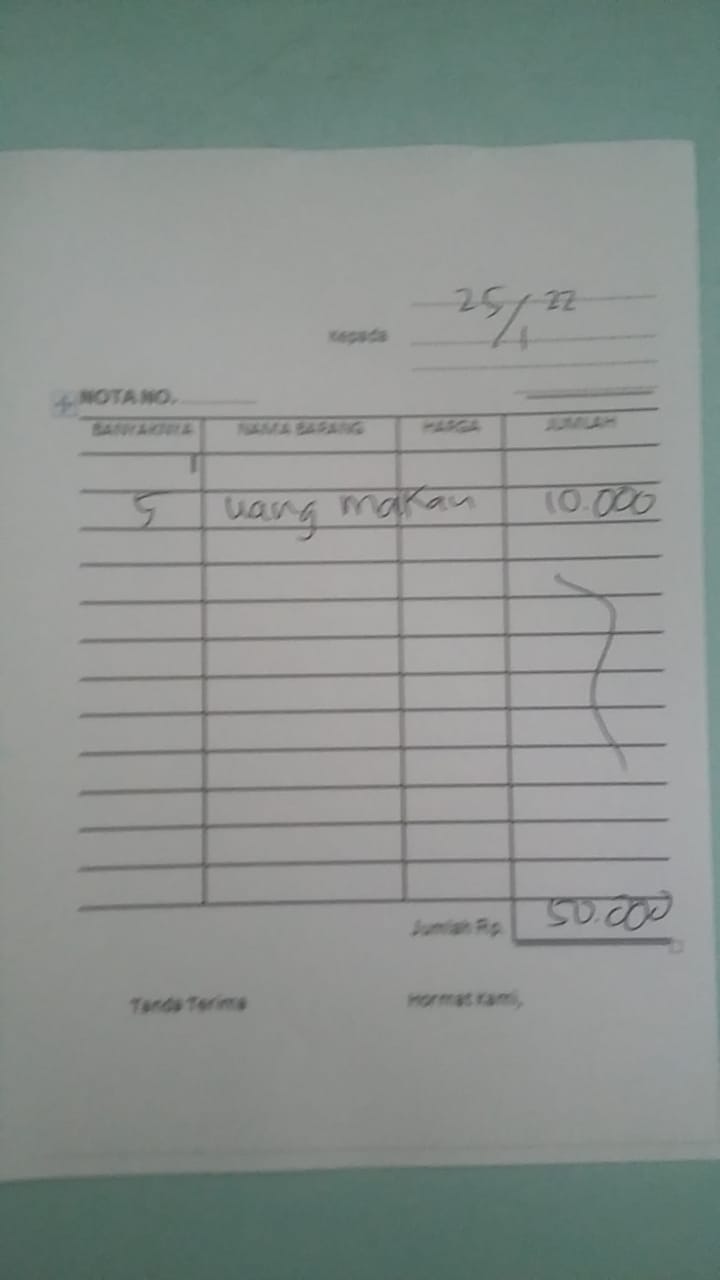 25/1 22
Kepada
NOTA NO.
BANYAKNYA NAMA BARANG HARGA JUMLAH
5 uang makan 10.000
Jumlah Rp. 50.000
Tanda Terima Hormat Kami,